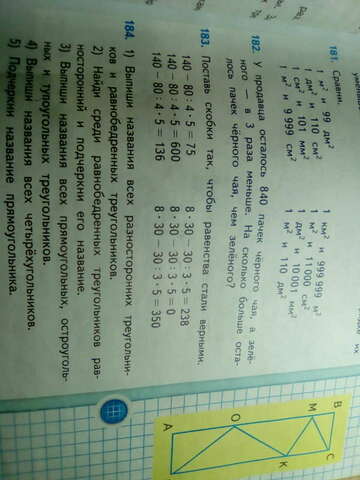 умен
181. Сравни.
1 м² и 99 дм² 1 км² и 999 999 м²
1 дм² и 110 см² 1 м² и 11 000 см²
1 см² и 101 мм² 1 дм² и 10 001 мм²
1 м² и 9 999 см² 1 м² и 110 дм²
182. У продавца осталось 840 пачек чёрного чая, а зелё-
ного — в 3 раза меньше. На сколько больше оста-
лось пачек чёрного чая, чем зелёного?
183. Поставь скобки так, чтобы равенства стали верными.
140 − 80 : 4 · 5 = 75 8 · 30 − 30 : 3 · 5 = 238
140 − 80 : 4 · 5 = 600 8 · 30 − 30 : 3 · 5 = 0
140 − 80 : 4 · 5 = 136 8 · 30 − 30 : 3 · 5 = 350
184. 1) Выпиши названия всех разносторонних треугольни-
ков и равнобедренных треугольников.
2) Найди среди равнобедренных треугольников рав-
носторонний и подчеркни его название.
3) Выпиши названия всех прямоугольных, остроуголь-
ных и тупоугольных треугольников.
4) Выпиши названия всех четырёхугольников.
5) Подчеркни название прямоугольника.
B
C
M
K
O
A